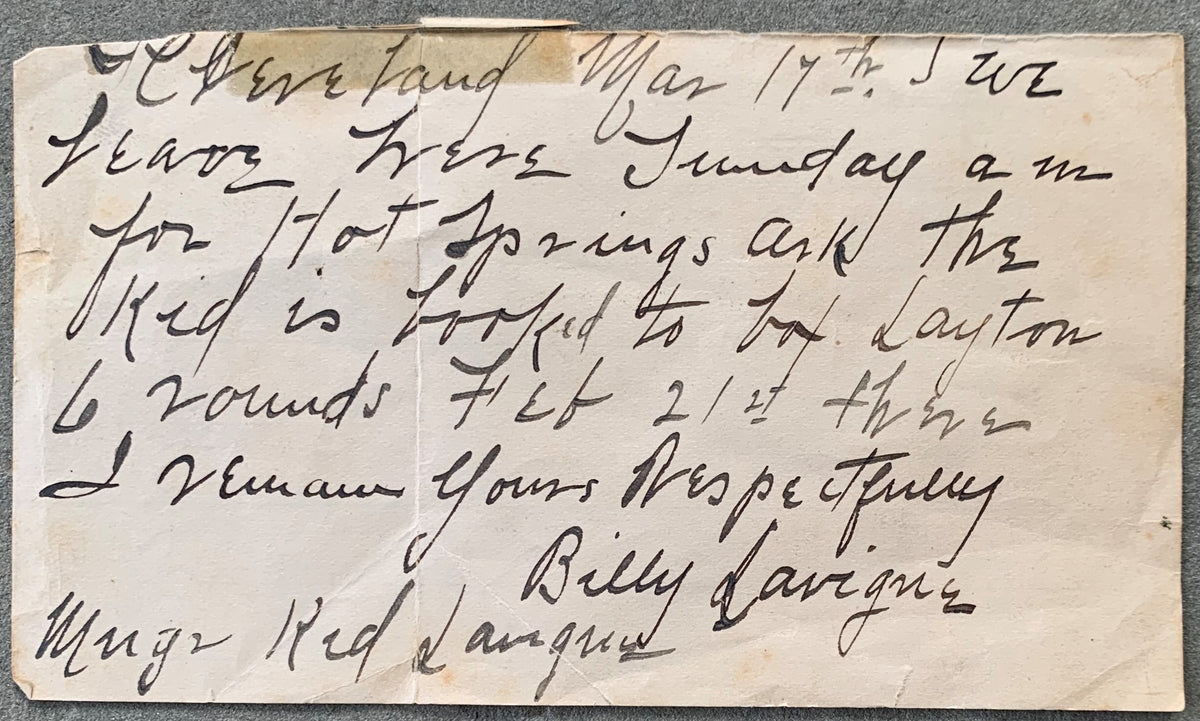 Cleveland Mar 17th. we
leave here Sunday am
for Hot Springs Ark the
Kid is booked to box Layton
6 rounds Feb 21st there
I remain Yours Respectfully
Billy Lavigne
Mngr Kid Lavigne